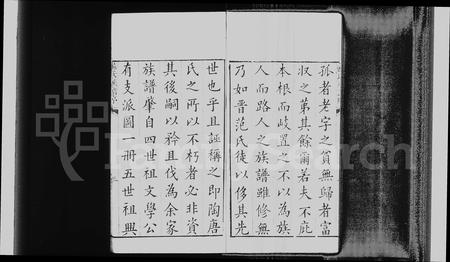 孤者老字之貧無歸者富
收之第其餘爾若夫不庇
本根而歧置之不以為族
人而路人之族譜雖修無
乃如晋范氏徒以侈其先
世也乎且誣稱之即陶唐
氏之所以不朽者必非資
其後嗣以矜且伐為余家
族譜肇自四世祖文學公
有支派圖一冊五世祖興